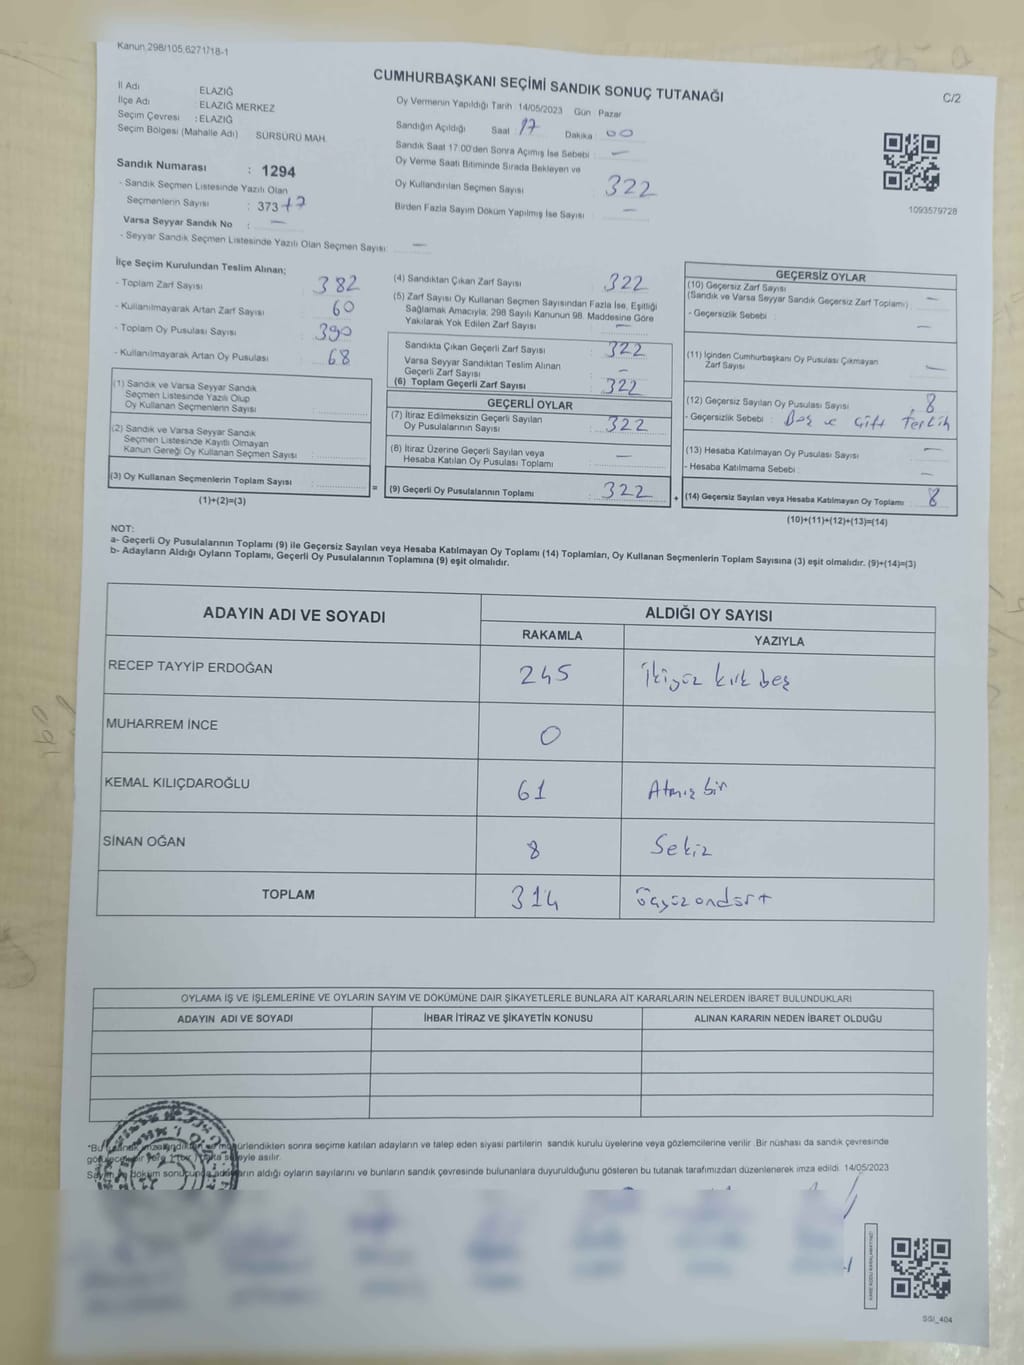 Kanun 298/105,6271/18-1
CUMHURBAŞKANI SEÇİMİ SANDIK SONUÇ TUTANAĞI
C/2
İl Adı ELAZIĞ
İlçe Adı ELAZIĞ MERKEZ
Seçim Çevresi : ELAZIĞ
Seçim Bölgesi (Mahalle Adı) SÜRSÜRÜ MAH.
Sandık Numarası : 1294
- Sandık Seçmen Listesinde Yazılı Olan
Seçmenlerin Sayısı : 373 +7
Varsa Seyyar Sandık No : —
- Seyyar Sandık Seçmen Listesinde Yazılı Olan Seçmen Sayısı: —
Oy Vermenin Yapıldığı Tarih : 14/05/2023 Gün : Pazar
Sandığın Açıldığı Saat : 17 Dakika : 00
Sandık Saat 17:00'den Sonra Açımış İse Sebebi : —
Oy Verme Saati Bitiminde Sırada Bekleyen ve
Oy Kullandırılan Seçmen Sayısı 322
Birden Fazla Sayım Döküm Yapılmış İse Sayısı —
1093579728
İlçe Seçim Kurulundan Teslim Alınan;
- Toplam Zarf Sayısı : 382
- Kullanılmayarak Artan Zarf Sayısı : 60
- Toplam Oy Pusulası Sayısı : 390
- Kullanılmayarak Artan Oy Pusulası : 68
(1) Sandık ve Varsa Seyyar Sandık
Seçmen Listesinde Yazılı Olup
Oy Kullanan Seçmenlerin Sayısı :
(2) Sandık ve Varsa Seyyar Sandık
Seçmen Listesinde Kayıtlı Olmayan
Kanun Gereği Oy Kullanan Seçmen Sayısı :
(3) Oy Kullanan Seçmenlerin Toplam Sayısı : =
(1)+(2)=(3)
(4) Sandıktan Çıkan Zarf Sayısı : 322
(5) Zarf Sayısı Oy Kullanan Seçmen Sayısından Fazla İse, Eşitliği
Sağlamak Amacıyla; 298 Sayılı Kanunun 98. Maddesine Göre
Yakılarak Yok Edilen Zarf Sayısı : —
Sandıkta Çıkan Geçerli Zarf Sayısı : 322
Varsa Seyyar Sandıktan Teslim Alınan
Geçerli Zarf Sayısı : —
(6) Toplam Geçerli Zarf Sayısı : 322
GEÇERLİ OYLAR
(7) İtiraz Edilmeksizin Geçerli Sayılan
Oy Pusulalarının Sayısı : 322
(8) İtiraz Üzerine Geçerli Sayılan veya
Hesaba Katılan Oy Pusulası Toplamı : —
(9) Geçerli Oy Pusulalarının Toplamı : 322 +
GEÇERSİZ OYLAR
(10) Geçersiz Zarf Sayısı
(Sandık ve Varsa Seyyar Sandık Geçersiz Zarf Toplamı) : —
- Geçersizlik Sebebi : —
(11) İçinden Cumhurbaşkanı Oy Pusulası Çıkmayan
Zarf Sayısı : —
(12) Geçersiz Sayılan Oy Pusulası Sayısı : 8
- Geçersizlik Sebebi : Boş ve Çift Tercih
(13) Hesaba Katılmayan Oy Pusulası Sayısı : —
- Hesaba Katılmama Sebebi : —
(14) Geçersiz Sayılan veya Hesaba Katılmayan Oy Toplamı : 8
(10)+(11)+(12)+(13)=(14)
NOT:
a- Geçerli Oy Pusulalarının Toplamı (9) ile Geçersiz Sayılan veya Hesaba Katılmayan Oy Toplamı (14) Toplamları, Oy Kullanan Seçmenlerin Toplam Sayısına (3) eşit olmalıdır. (9)+(14)=(3)
b- Adayların Aldığı Oyların Toplamı, Geçerli Oy Pusulalarının Toplamına (9) eşit olmalıdır.
ADAYIN ADI VE SOYADI
ALDIĞI OY SAYISI
RAKAMLA YAZIYLA
RECEP TAYYİP ERDOĞAN 245 İkiyüz kırk beş
MUHARREM İNCE 0
KEMAL KILIÇDAROĞLU 61 Atmış bir
SİNAN OĞAN 8 Sekiz
TOPLAM 314 üçyüz ondört
OYLAMA İŞ VE İŞLEMLERİNE VE OYLARIN SAYIM VE DÖKÜMÜNE DAİR ŞİKAYETLERLE BUNLARA AİT KARARLARIN NELERDEN İBARET BULUNDUKLARI
ADAYIN ADI VE SOYADI İHBAR İTİRAZ VE ŞİKAYETİN KONUSU ALINAN KARARIN NEDEN İBARET OLDUĞU
*Bu mühürlendikten sonra seçime katılan adayların ve talep eden siyasi partilerin sandık kurulu üyelerine veya gözlemcilerine verilir .Bir nüshası da sandık çevresinde
asılır.
döküm sonucunda adayların aldığı oyların sayılarını ve bunların sandık çevresinde bulunanlara duyurulduğunu gösteren bu tutanak tarafımızdan düzenlenerek imza edildi. 14/05/2023
SGI_404